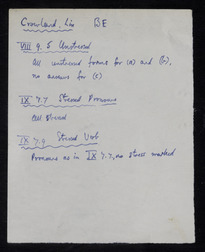 Crowland, Lin BE
VIII 9.5 Unstressed
All unstressed forms for (a) and (b),
no answer for (c)
IX 7.7 Stressed Pronouns
All stressed
IX 7.9 Stressed Verb
Pronouns as in IX 7.7, no stress marked